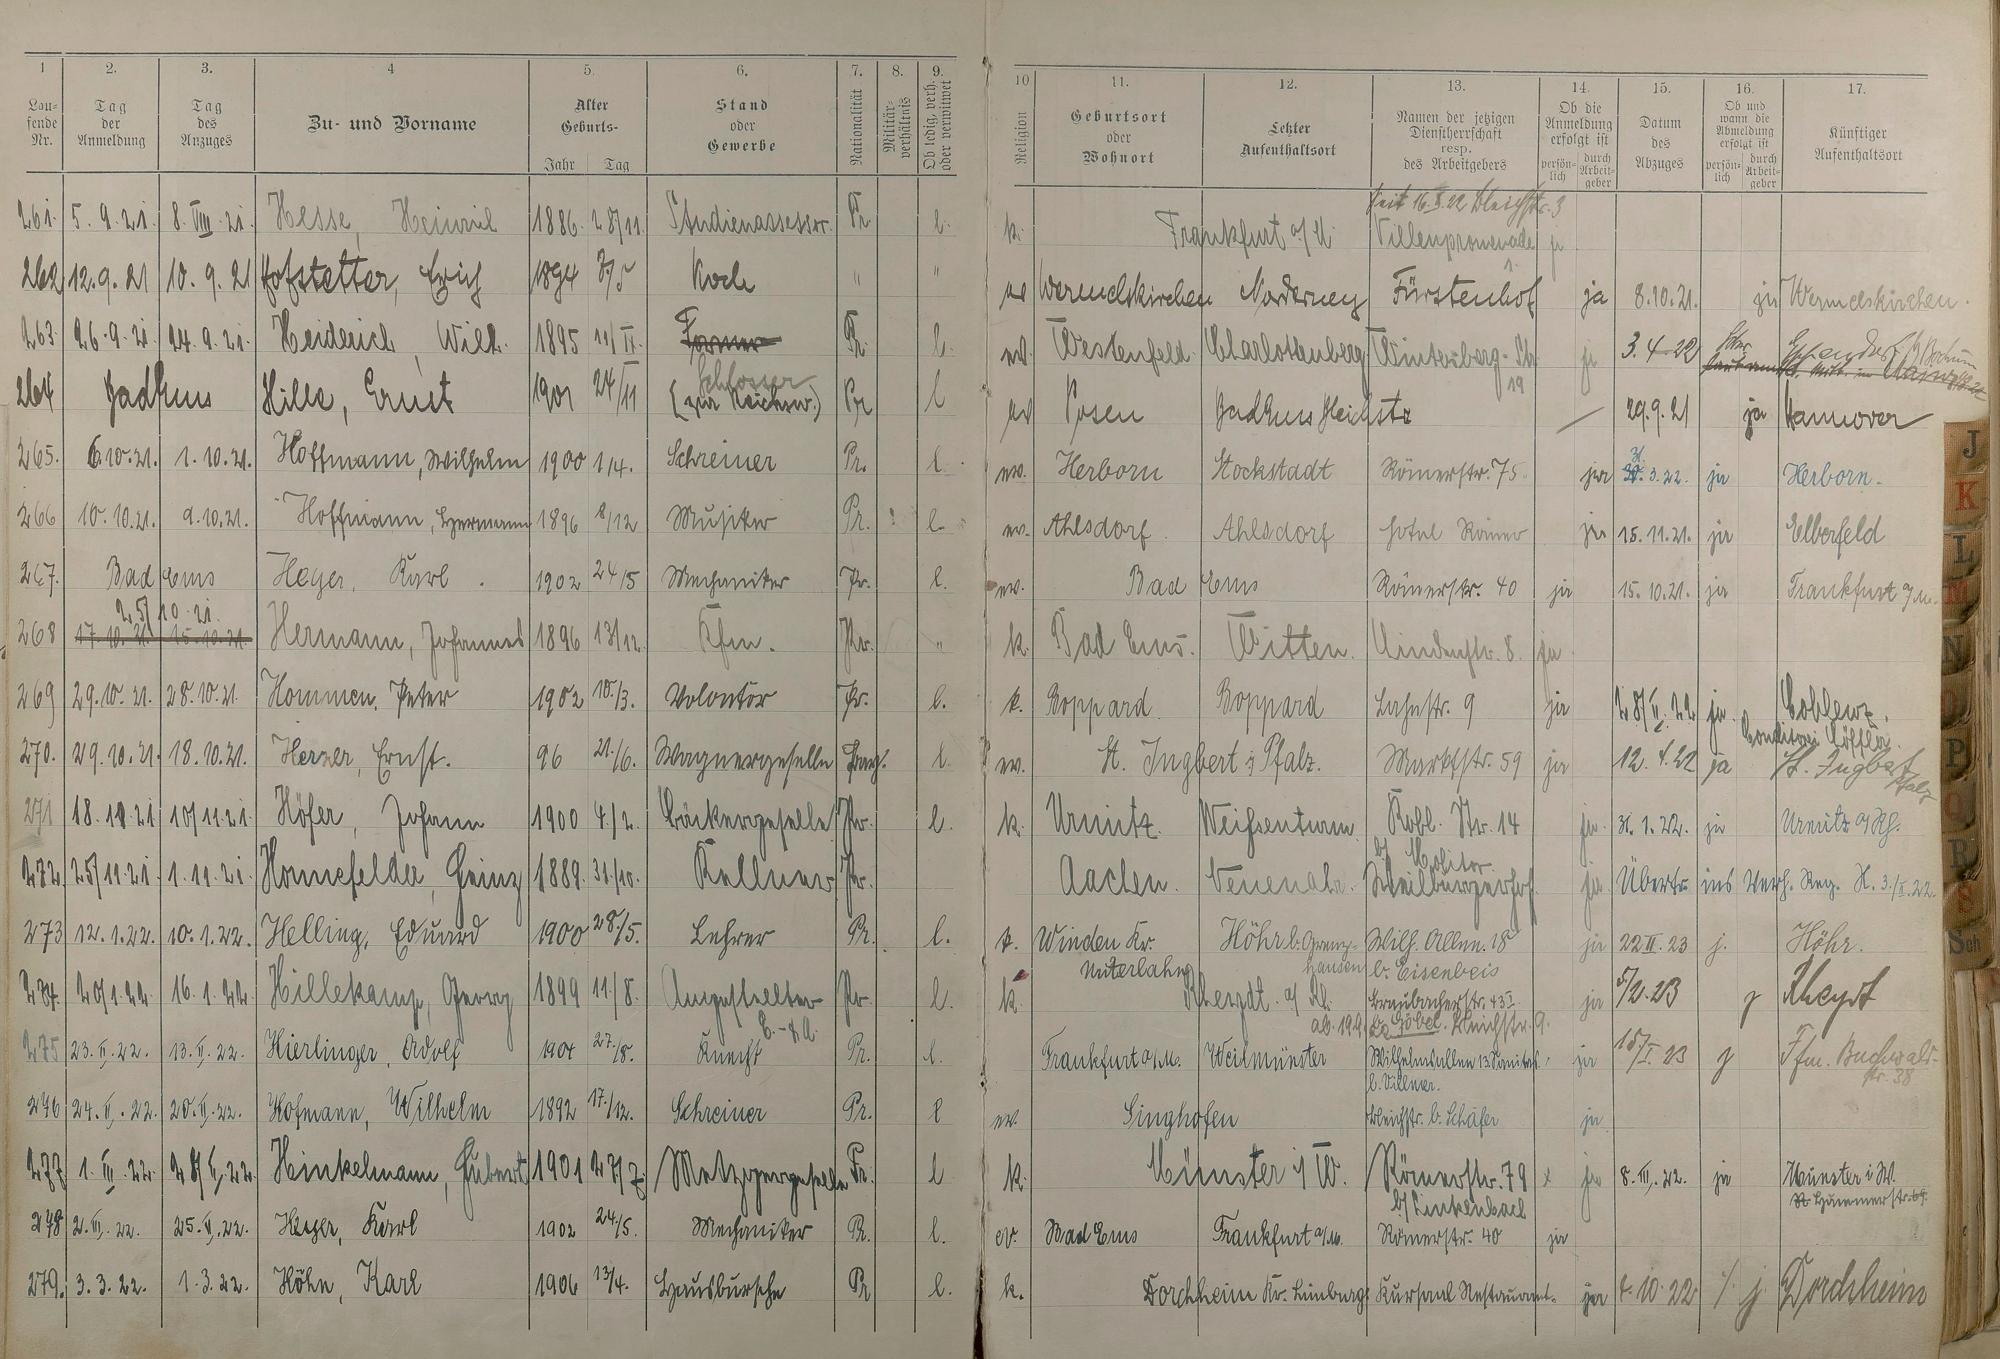 1 2. 3. 4 5. 6. 7. 8. 9. 10 11. 12. 13. 14. 15. 16. 17.
Lau-fende Nr. Tag der Anmeldung Tag des Anzuges Zu- und Vorname Alter Geburts- Jahr Tag Stand oder Gewerbe Nationalität Militär-verhältnis Ob ledig, verh. oder verwitwet Religion Geburtsort oder Wohnort Letzter Aufenthaltsort Namen der jetzigen Dienstherrschaft resp. des Arbeitgebers Ob die Anmeldung erfolgt ist persön-lich durch Arbeit-geber Datum des Abzuges Ob und wann die Abmeldung erfolgt ist persön-lich durch Arbeit-geber Künftiger Aufenthaltsort
seit 16.5.22 Bleichstr. 3
261. 5. 9. 21. 8. VIII. 21. Hesse, Heinrich 1886. 28/11. Studienassessor. Pr l. k. Frankfurt a/M. Villenpromenade ja
262 12. 9. 21 10. 9. 21 Hofstetter, Erich 1894 3/5 Koch " " ev Wermelskirchen Norderney Fürstenhof ja 8.10.21. ja Wermelskirchen.
263 26. 9. 21. 24. 9. 21. Heiderich, Wilh. 1895 11/IV. Former Pr. l. ev. Westenfeld. Charlottenberg Wintersberg-Str. 19 ja 3. 4. 22
Schlosser
264 Bad Ems Hille, Ernst 1901 24/11 (zur Reichsw.) Pr l ev Posen Bad Ems Bleichstr 29. 9. 21 ja Hannover
265. 6.10.21. 1. 10. 21. Hoffmann, Wilhelm 1900 1/4. Schreiner Pr. l. ev. Herborn Stockstadt Römerstr. 75. ja 31. 3. 22. ja Herborn.
266 10. 10. 21. 9. 10. 21. Hoffmann, Hermann 1896 8/12 Musiker Pr. l. ev. Ahlsdorf. Ahlsdorf Hotel Römer ja 15. 11. 21. ja Elberfeld
267. Bad Ems Heyer, Karl. 1902 24/5 Mechaniker Pr. l. ev. Bad Ems Römerstr. 40 ja 15. 10. 21. ja Frankfurt a/M.
25/10. 21.
268 17. 10. 21. 15. 10. 21. Hermann, Johannes 1896 13/12. Kfm. Pr. " k. Bad Ems. Witten. Lindenstr. 8. ja
269 29. 10. 21. 28. 10. 21. Hommen, Peter 1902 10./3. Volontär Pr. l. k. Boppard. Boppard Lahnstr. 9 ja 28/II. 22 ja Coblenz.
Conditorei Löffler.
270. 29. 10. 21. 18. 10. 21. Herzer, Ernst. 96 21./6. Wagnergeselle Bay. l. ev. St. Ingbert i/Pfalz. Marktstr. 59 ja 12. 4. 22 ja St. Ingbert Pfalz
271 18. 11. 21 10/11. 21. Höfer, Johann 1900 4/2. Bäckergeselle Pr. l. k. Urmitz. Weißenturm Kobl. Str. 14 ja. 31. 1. 22. ja Urmitz a/Rh.
272 25/11. 21. 1. 11. 21. Honnefelder, Heinz 1889. 31./10. Kellner Pr. Aachen. Venenahr. Weilburgerhof ja Übertr. ins Verh. Reg. H. 3./II. 22.
273 12. 1. 22. 10. 1. 22. Helling, Eduard 1900 28./5. Lehrer Pr. l. k. Winden Kr. Höhr b. Grenz- Wilh. Allee. 18 ja 22 II. 23 j. Höhr.
Unterlahn hausen b. Eisenbeis
274. 20/1. 22 16. 1. 22. Hillekamp, Georg 1899 11./8. Angestellter Pr. l. k. Rheydt a/Rh. Braubacherstr. 43 I. ja 5/2. 23 j Rheydt
E.-A. ab. 19.4. b. Göbel. Bleichstr. 9.
275 23. II. 22. 13. II. 22. Hierlinger, Adolf 1904 27./8. Knecht Pr. l. Frankfurt a/M. Weilmünster Wilhelmsallee 13. ja 15/I. 23 j Ffm. Buchwald-
b. Villmer. str. 38
276 24. II. 22. 20. II. 22. Hofmann, Wilhelm 1892 17./12. Schreiner Pr. l ev. Singhofen Bleichstr. b. Schäfer ja
277 1. III. 22. 28/II. 22. Hinkelmann, Hubert 1901 27/7. Metzgergeselle Pr. l k. Münster i/W. Römerstr. 79 ja 8. III. 22. ja Münster i. W.
b/ Linkenbach Hammerstr.
278 2. III. 22. 25. II. 22. Heyer, Karl 1902 24/5. Mechaniker Pr. l. ev. Bad Ems Frankfurt a/M. Römerstr. 40 ja
279. 3. 3. 22. 1. 3. 22. Höhn, Karl 1906 13/4. Hausbursche Pr l. k. Dorchheim Kr. Limburg Kursaal Restaurant. ja 4. 10. 22 j. Dorchheim
J
K
L
M
N
O
P
Q
R
S
Sch